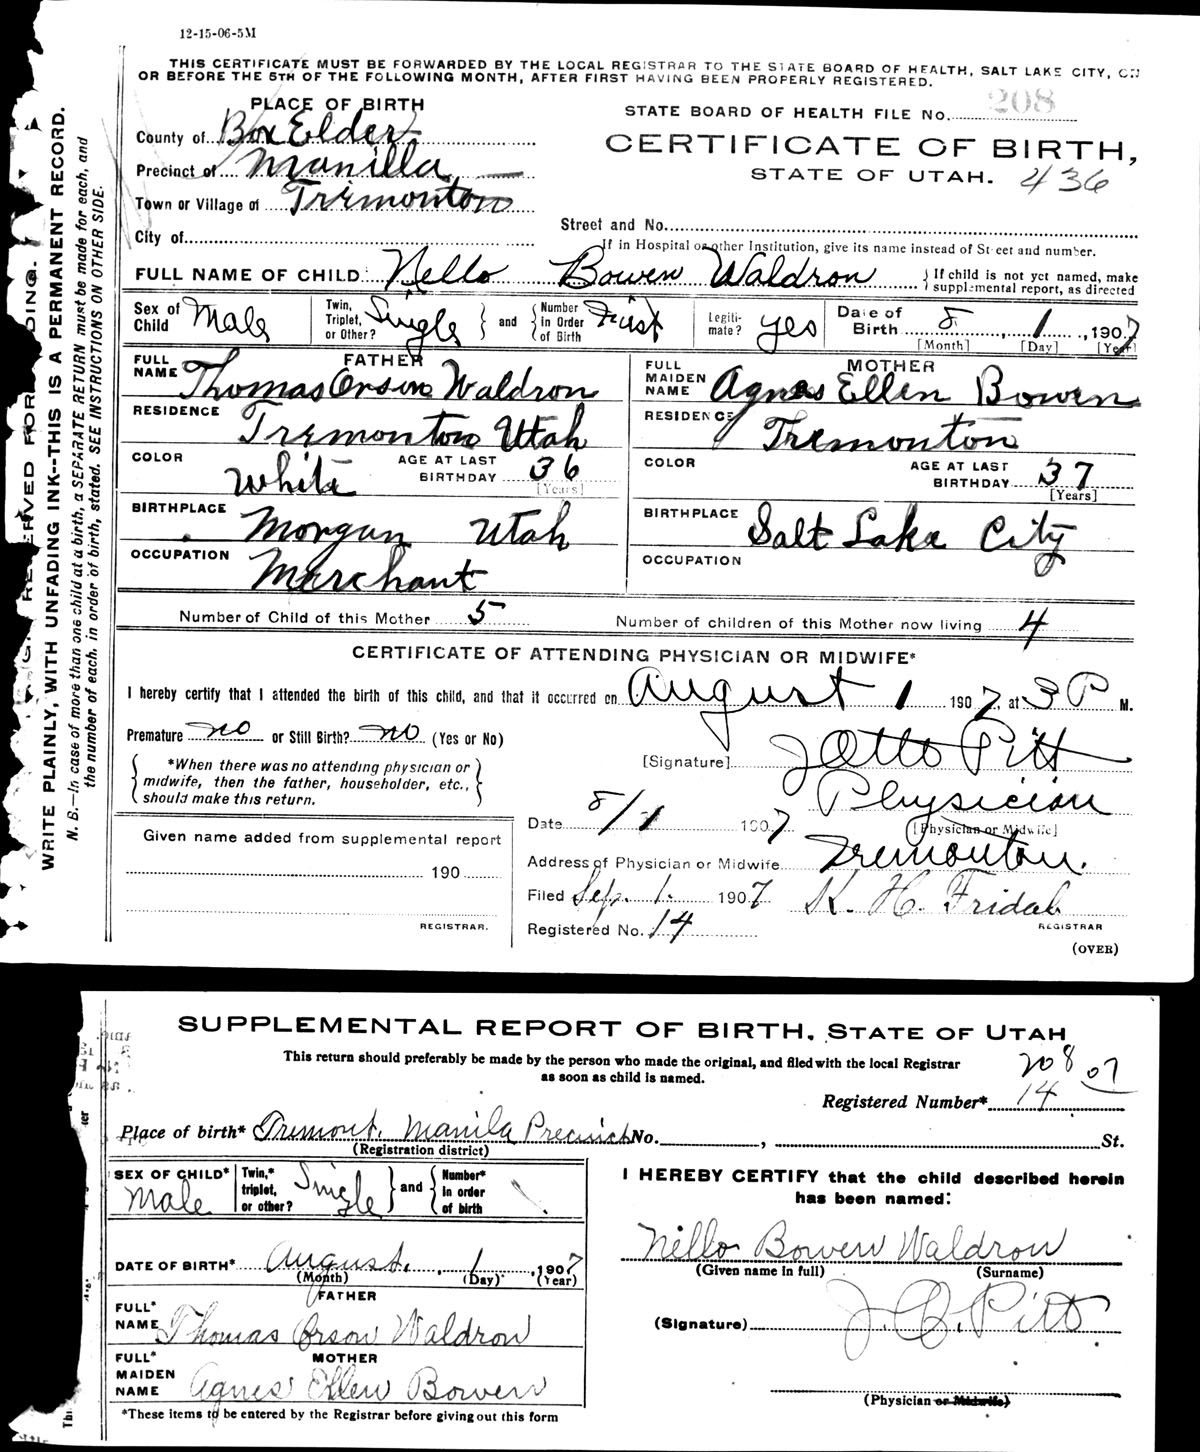 12-15-06-5M
THIS CERTIFICATE MUST BE FORWARDED BY THE LOCAL REGISTRAR TO THE STATE BOARD OF HEALTH, SALT LAKE CITY, ON
OR BEFORE THE 5TH OF THE FOLLOWING MONTH, AFTER FIRST HAVING BEEN PROPERLY REGISTERED.
WRITE PLAINLY, WITH UNFADING INK--THIS IS A PERMANENT RECORD.
N. B.—In case of more than one child at a birth, a SEPARATE RETURN must be made for each, and
the number of each, in order of birth, stated. SEE INSTRUCTIONS ON OTHER SIDE.
PLACE OF BIRTH
STATE BOARD OF HEALTH FILE No. 208
County of Box Elder
CERTIFICATE OF BIRTH,
Precinct of Manilla
STATE OF UTAH. 436
Town or Village of Tremonton
Street and No.
City of
If in Hospital or other Institution, give its name instead of Street and number.
FULL NAME OF CHILD Nello Bowen Waldron { If child is not yet named, make
supplemental report, as directed
Sex of Child Male Twin, Triplet, or Other? Single } and { Number in Order of Birth First Legiti-mate? yes Date of Birth 8, 1, 1907
[Month] [Day] [Year]
FATHER MOTHER
FULL NAME Thomas Orson Waldron FULL MAIDEN NAME Agnes Ellen Bowen
RESIDENCE Tremonton Utah RESIDENCE Tremonton
COLOR White AGE AT LAST BIRTHDAY 36 [Years] COLOR AGE AT LAST BIRTHDAY 37 [Years]
BIRTHPLACE Morgan Utah BIRTHPLACE Salt Lake City
OCCUPATION Merchant OCCUPATION
Number of Child of this Mother 5 Number of children of this Mother now living 4
CERTIFICATE OF ATTENDING PHYSICIAN OR MIDWIFE*
I hereby certify that I attended the birth of this child, and that it occurred on August 1 1907, at 3 P M.
Premature no or Still Birth? no (Yes or No)
[Signature] J Otto Pitt
{ *When there was no attending physician or
midwife, then the father, householder, etc.,
should make this return. }
Physician
[Physician or Midwife]
Date 8/1 1907
Given name added from supplemental report
190
REGISTRAR.
Address of Physician or Midwife Tremonton.
Filed Sep. 1. 1907 K. H. Fridal
REGISTRAR
Registered No. 14
(OVER)
SUPPLEMENTAL REPORT OF BIRTH, STATE OF UTAH
This return should preferably be made by the person who made the original, and filed with the local Registrar
as soon as child is named.
208 07
Registered Number* 14
Place of birth* Tremont. Manila Precinct No. , St.
(Registration district)
SEX OF CHILD* Male Twin,* triplet, or other? Single } and { Number* in order of birth
I HEREBY CERTIFY that the child described herein
has been named:
DATE OF BIRTH* August. , 1 , 1907
(Month) (Day) (Year)
Nello Bowen Waldron
(Given name in full) (Surname)
FATHER
FULL* NAME Thomas Orson Waldron
(Signature) J. O. Pitt
MOTHER
FULL* MAIDEN NAME Agnes Ellen Bowen
(Physician or Midwife)
*These items to be entered by the Registrar before giving out this form